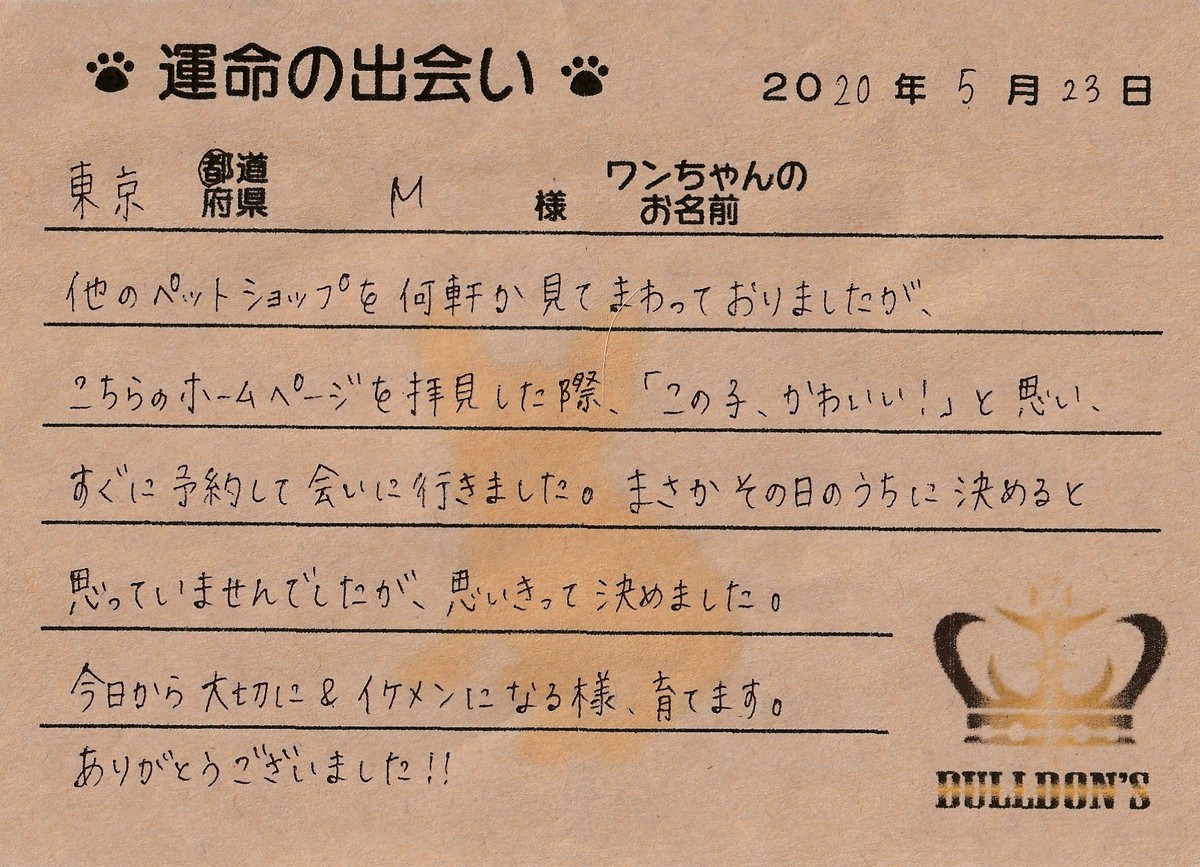 運命の出会い
2020年5月23日
東京 都道府県 M 様 ワンちゃんのお名前
他のペットショップを何軒か見てまわっておりましたが、
こちらのホームページを拝見した際、「この子、かわいい!」と思い、
すぐに予約して会いに行きました。まさかその日のうちに決めると
思っていませんでしたが、思いきって決めました。
今日から大切に&イケメンになる様、育てます。
ありがとうございました!!
BULLDON'S